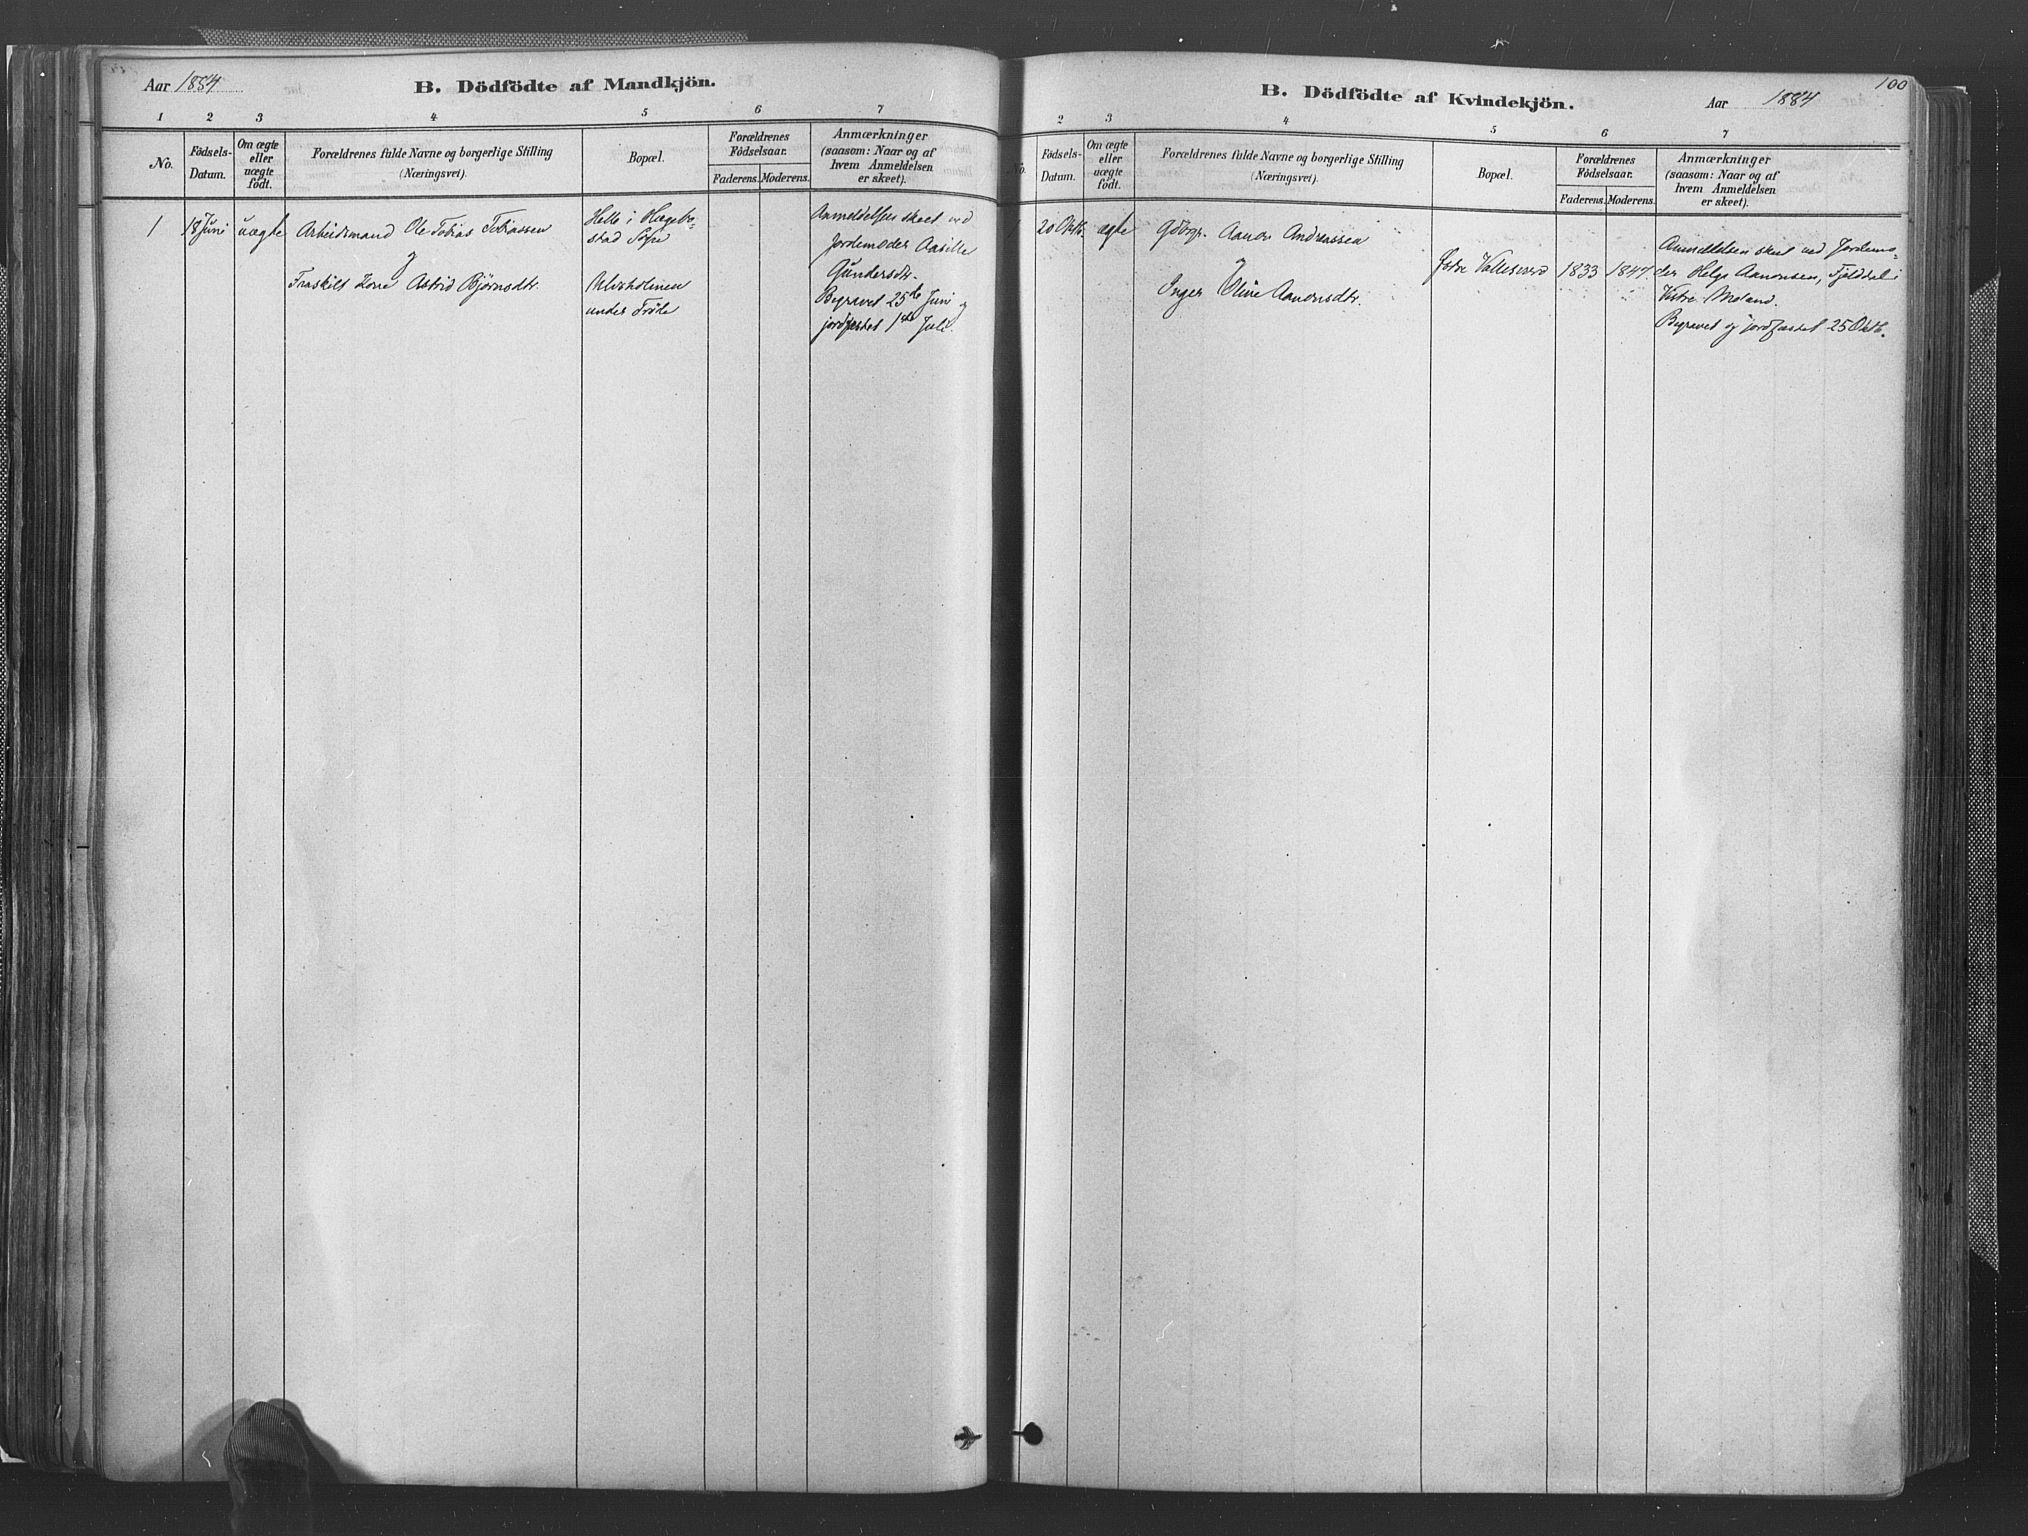 Aar 1884
B. Dödfödte af Mandkjön.
1 2 3 4 5 6 7
No.
Födsels-
Datum.
Om ægte
eller
uægte
födt.
Forældrenes fulde Navne og borgerlige Stilling
(Næringsvei).
Bopæl.
Forældrenes
Födselsaar.
Faderens. Moderens.
Anmærkninger
(saasom: Naar og af
hvem Anmeldelsen
er skeet).
1
18 Juni
uægte
Arbeidsmand Ole Tobias Tobiassen
og
Fraskilt Kone Astrid Bjørnsdtr.
Helle i Hægebo-
stad Sogn
under
Anmeldelsen skeet ved
Jordemoder Aasille
Gundersdtr.
Begravet 25de Juni og
jordfæstet 1ste Juli.
B. Dödfödte af Kvindekjön.
Aar 1884
100
2 3 4 5 6 7
No.
Födsels-
Datum.
Om ægte
eller
uægte
födt.
Forældrenes fulde Navne og borgerlige Stilling
(Næringsvei).
Bopæl.
Forældrenes
Födselsaar.
Faderens. Moderens.
Anmærkninger
(saasom: Naar og af
hvem Anmeldelsen
er skeet).
1
20 Oktb.
ægte
Gdbrgr. Aanon Andreassen
og
Inger Oline Aanonsdtr.
Østre Vatlesverd
1833
1847
Anmeldelsen skeet ved Jordemo-
der Helga Aanonsen, Fjelddal i
Vestre Moland.
Begravet og jordfæstet 25 Oktb.